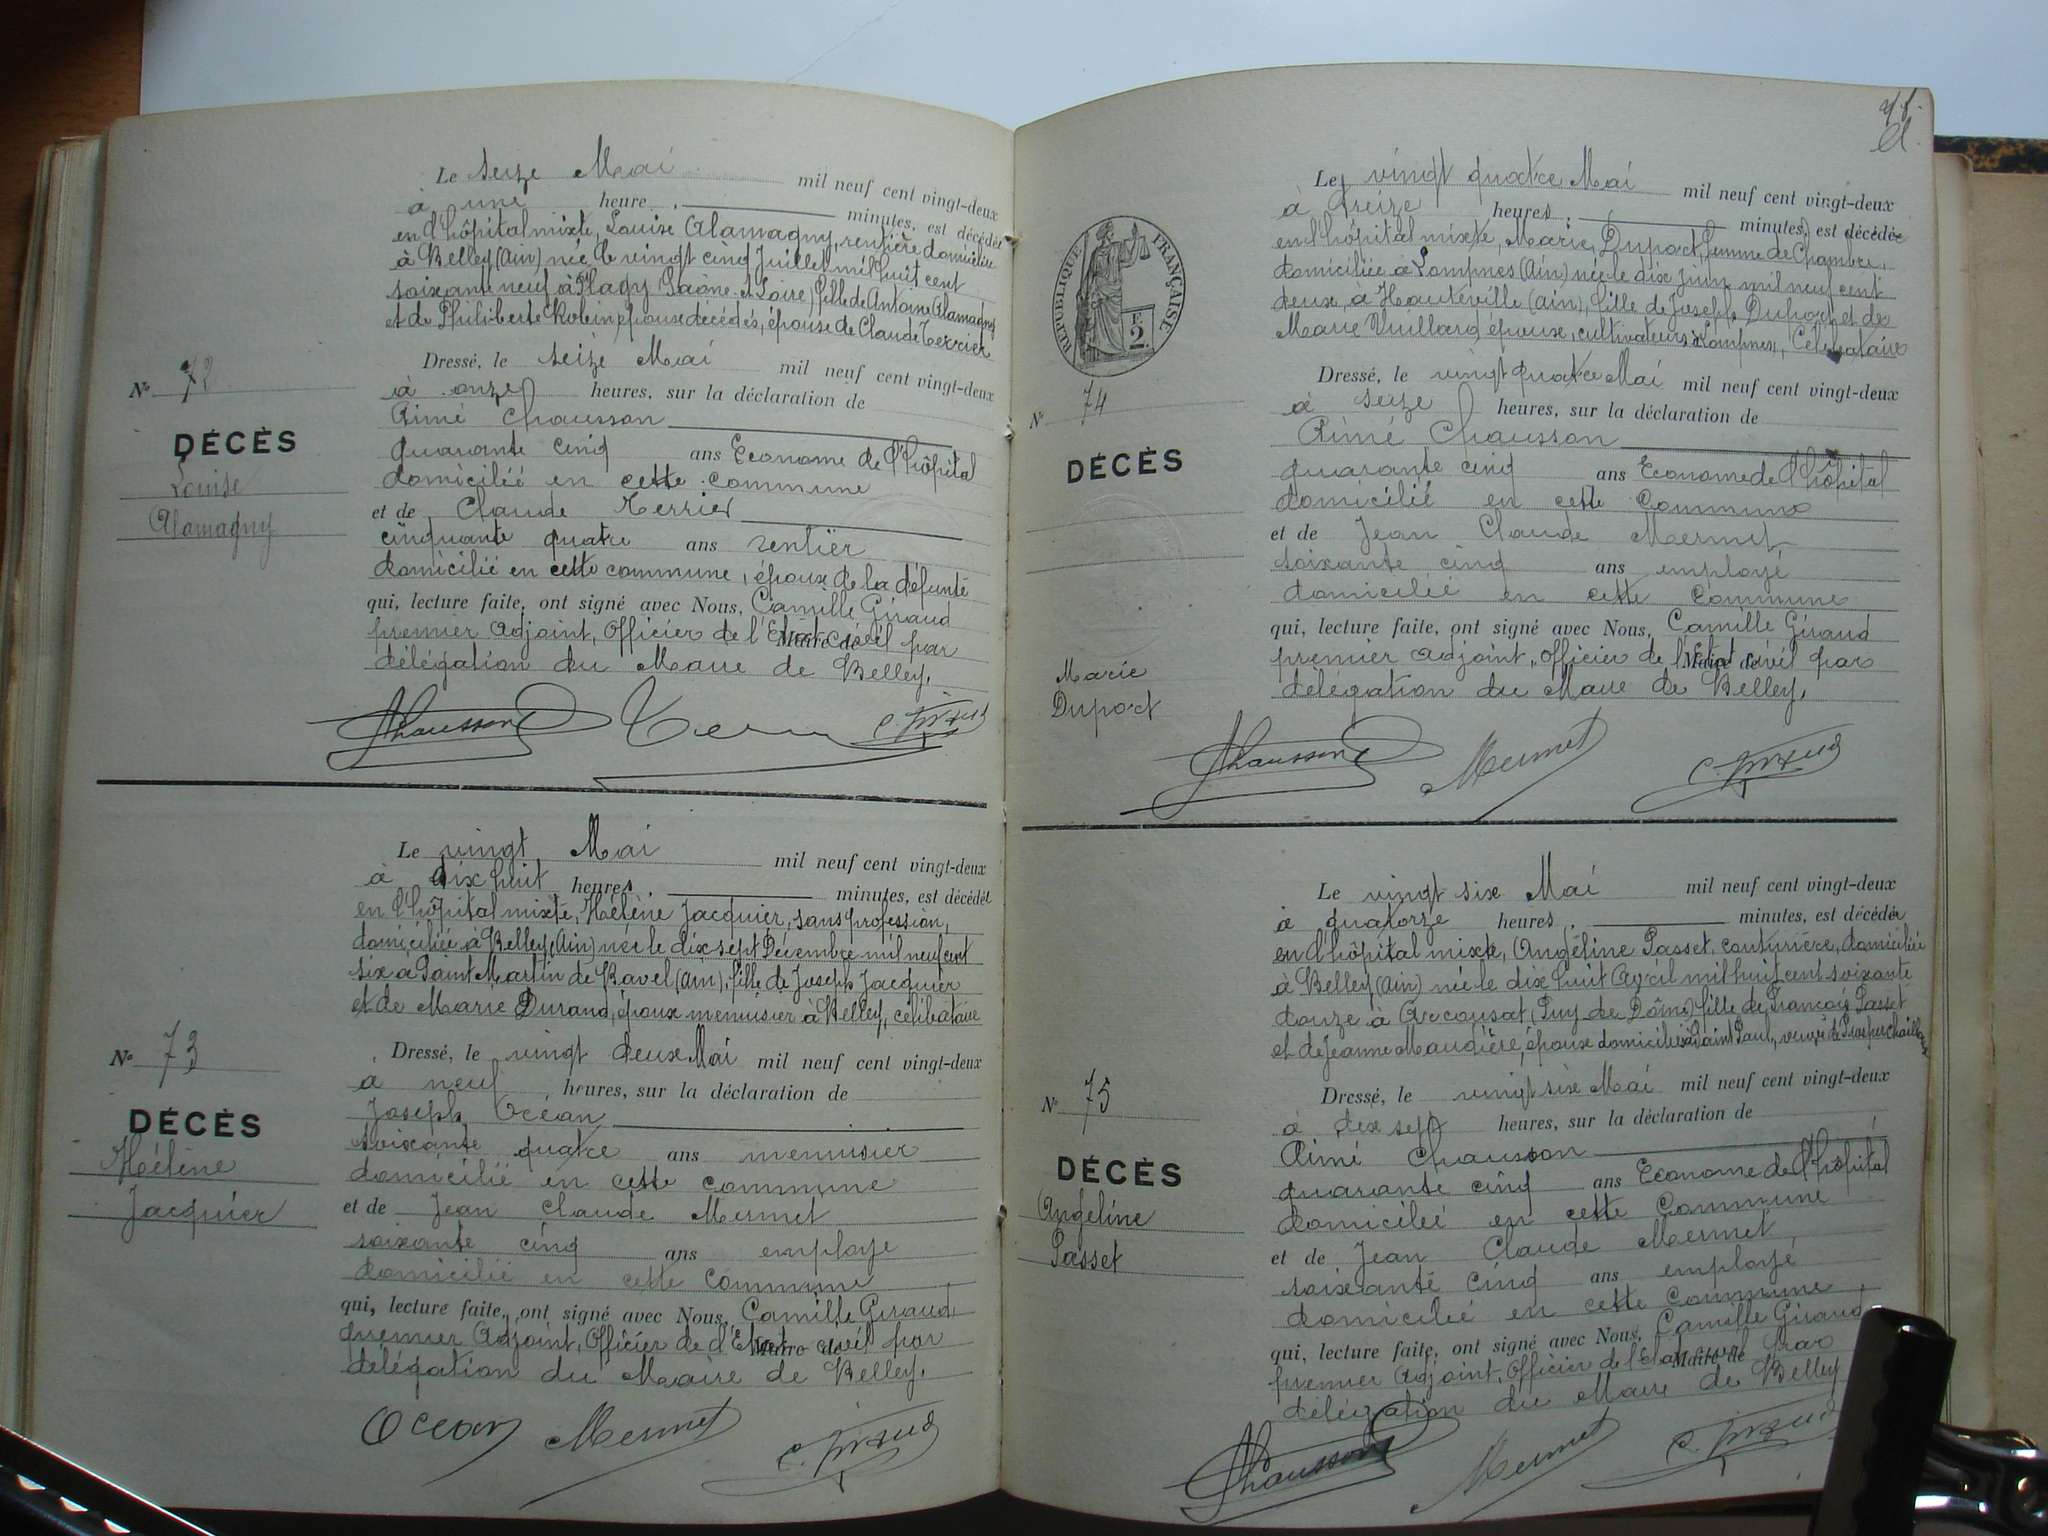 Le seize Mai mil neuf cent vingt-deux
à une heure, minutes, est décédée
en l'hôpital mixte, Louise Alamagny, rentière domiciliée
à Belley (Ain) née le vingt cinq Juillet mil huit cent
soixante neuf à Flagy Saône et Loire, fille de Antoine Alamagny
et de Philiberte Robin, époux décédés, épouse de Claude Terrier
N° 72
DÉCÈS
Louise
Alamagny
Dressé, le seize Mai mil neuf cent vingt-deux
à onze heures, sur la déclaration de
Aimé Chausson
quarante cinq ans Econome de l'hôpital
domiciliée en cette commune
et de Claude Terrier
cinquante quatre ans rentier
domicilié en cette commune, époux de la défunte
qui, lecture faite, ont signé avec Nous, Camille Giraud
premier Adjoint, Officier de l'Etat civil par
Maire de
délégation du Maire de Belley.
Chausson C. Giraud
Le vingt Mai mil neuf cent vingt-deux
à dix huit heures, minutes, est décédée
en l'hôpital mixte, Hélène Jacquier, sans profession,
domiciliée à Belley (Ain) née le dix sept Décembre mil neuf cent
six à Saint Martin de Bavel (Ain), fille de Joseph Jacquier
et de Marie Durand, époux menuisier à Belley, célibataire
N° 73
DÉCÈS
Hélène
Jacquier
Dressé, le vingt deux Mai mil neuf cent vingt-deux
à neuf heures, sur la déclaration de
Joseph Océan
soixante quatre ans menuisier
domicilié en cette commune
et de Jean Claude Mermet
soixante cinq ans employé
domicilié en cette commune
qui, lecture faite, ont signé avec Nous, Camille Giraud
premier Adjoint, Officier de l'Etat civil par
Maire de
délégation du Maire de Belley.
Océan Mermet C. Giraud
Le vingt quatre Mai mil neuf cent vingt-deux
à treize heures, minutes, est décédée
en l'hôpital mixte, Marie Duport, femme de Chambre,
domiciliée à Lompnes (Ain) née le dix Juin mil neuf cent
deux, à Hauteville (Ain), fille de Joseph Duport et de
Marie Vuillard, époux, cultivateurs à Lompnes, Célibataire
RÉPUBLIQUE FRANÇAISE
F.
2.
N° 74
DÉCÈS
Marie
Duport
Dressé, le vingt quatre Mai mil neuf cent vingt-deux
à seize heures, sur la déclaration de
Aimé Chausson
quarante cinq ans Econome de l'hôpital
domicilié en cette Commune
et de Jean Claude Mermet
soixante cinq ans employé
domicilié en cette Commune
qui, lecture faite, ont signé avec Nous, Camille Giraud
premier Adjoint, Officier de l'Etat civil par
Maire de
délégation du Maire de Belley.
Chausson Mermet C. Giraud
Le vingt six Mai mil neuf cent vingt-deux
à quatorze heures, minutes, est décédée
en l'hôpital mixte, Angéline Passet, couturière, domiciliée
à Belley (Ain) née le dix huit Avril mil huit cent soixante
douze à Arconsat, Puy de Dôme, fille de François Passet
et de Jeanne Maudière, époux domiciliés à Saint Paul, veuve de Prosper
N° 75
DÉCÈS
Angéline
Passet
Dressé, le vingt six Mai mil neuf cent vingt-deux
à dix sept heures, sur la déclaration de
Aimé Chausson
quarante cinq ans Econome de l'hôpital
domicilié en cette Commune
et de Jean Claude Mermet
soixante cinq ans employé
domicilié en cette commune
qui, lecture faite, ont signé avec Nous, Camille Giraud
premier Adjoint, Officier de l'Etat civil par
Maire de
délégation du Maire de Belley
Chausson Mermet C. Giraud